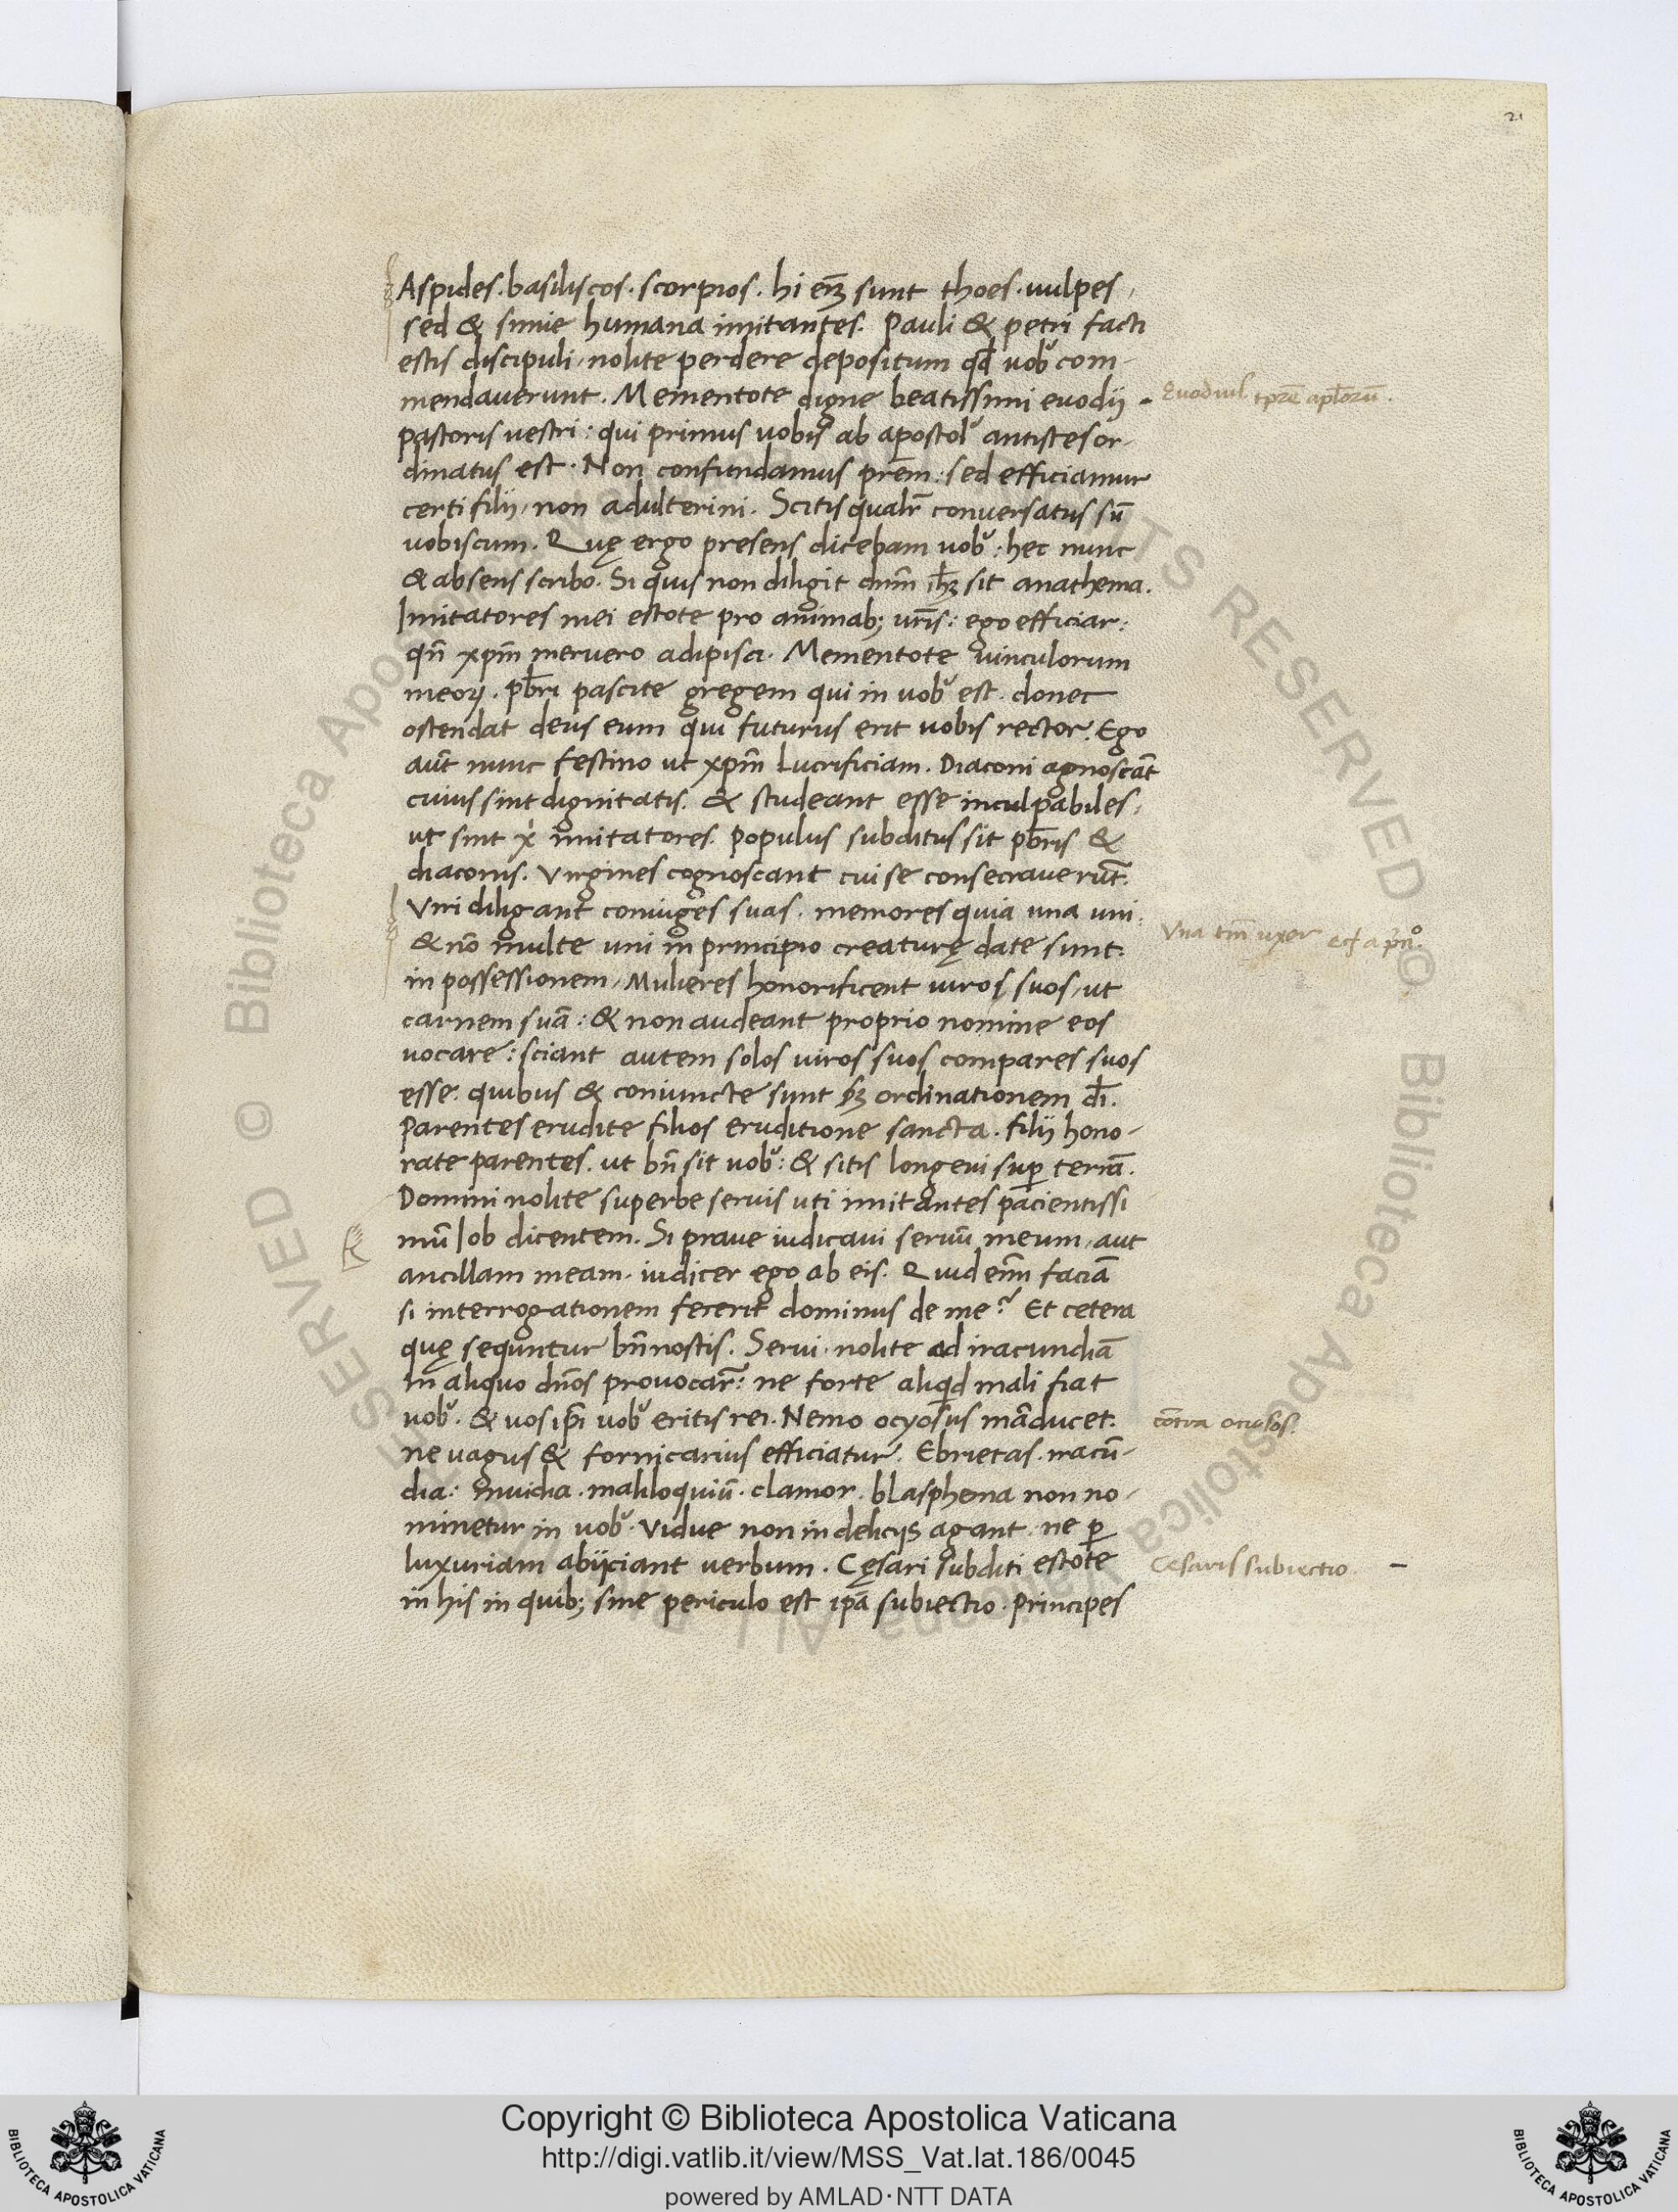 21
Aspides. basiliscos. scorpios. hi em̃ sunt thoes. uulpes,
sed & simie humana imitantes. Pauli & petri facti
estis discipuli, nolite perdere depositum qđ uob᷒ com-
mendauerunt. Mementote digne beatissimi euodij
pastoris uestri: qui primus uobis ab apostol᷒ antistes or-
dinatus est. Non confundamus prẽm: sed efficiamur
certi filij, non adulterini. Scitis qualr̃ conuersatus sũ
uobiscum. Quę ergo presens dicebam uob᷒: hec nunc
& absens scribo. Si quis non diligit dnm̃ ihꝫ sit anathema.
Imitatores mei estote pro animab; ur̃is: ego efficiar:
qñ xpm̃ meruero adipisci. Mementote uinculorum
meoꝝ. pb̃ri pascite gregem qui in uob᷒ est. donec
ostendat deus eum qui futurus erit uobis rector. Ego
aut̃ nunc festino ut xpm̃ Lucrificiam. Diaconi agnoscãt
cuius sint dignitatis. & studeant esse inculpabiles,
ut sint x̓ imitatores. Populus subditus sit pb̃ris &
diaconis. Virgines cognoscant cui se consecrauerũt.
Viri diligant coniuges suas. memores quia una uni.
& nõ multe uni in principio creaturę date sunt.
in possessionem, Mulieres honorificent uiros suos, ut
carnem suã: & non audeant proprio nomine eos
uocare: sciant autem solos uiros suos compares suos
esse. quibus & coniuncte sunt ẜꝫ ordinationem dı̃.
Parentes erudite filios eruditione sancta. filij hono-
rate parentes. ut bñ sit uob᷒: & sitis longeui suꝑ terrã.
Domini nolite superbe seruis uti imitantes pacientissi
mũ Iob dicentem. Si praue iudicaui seruũ meum, aut
ancillam meam. iudicer ego ab eis. Quid enı̃m faciã
si interrogationem fecerit dominus de me? Et cetera
quę sequntur bñ nostis. Serui. nolite ad iracundiã
in aliquo dños prouocar̃: ne forte aliqd mali fiat
uob᷒. & uos ip̃i uob᷒ eritis rei. Nemo ocyosus mãducet.
ne uagus & fornicarius efficiatur. Ebrietas. iracũ-
dia: inuidia. maliloquiũ. clamor. blasphema non no-
minetur in uob᷒. Vidue non in delicijs agant. ne ꝑ
luxuriam abijciant uerbum. Cęsari subditi estote
in his in quib; sine periculo est ip̃a subiectio. Principes
Vna tm̃ uxor
cõtra ociosos.
Cesaris subiectio. –
Copyright © Biblioteca Apostolica Vaticana
http://digi.vatlib.it/view/MSS_Vat.lat.186/0045
powered by AMLAD·NTT DATA
BIBLIOTECA APOSTOLICA VATICANA
BIBLIOTECA APOSTOLICA VATICANA